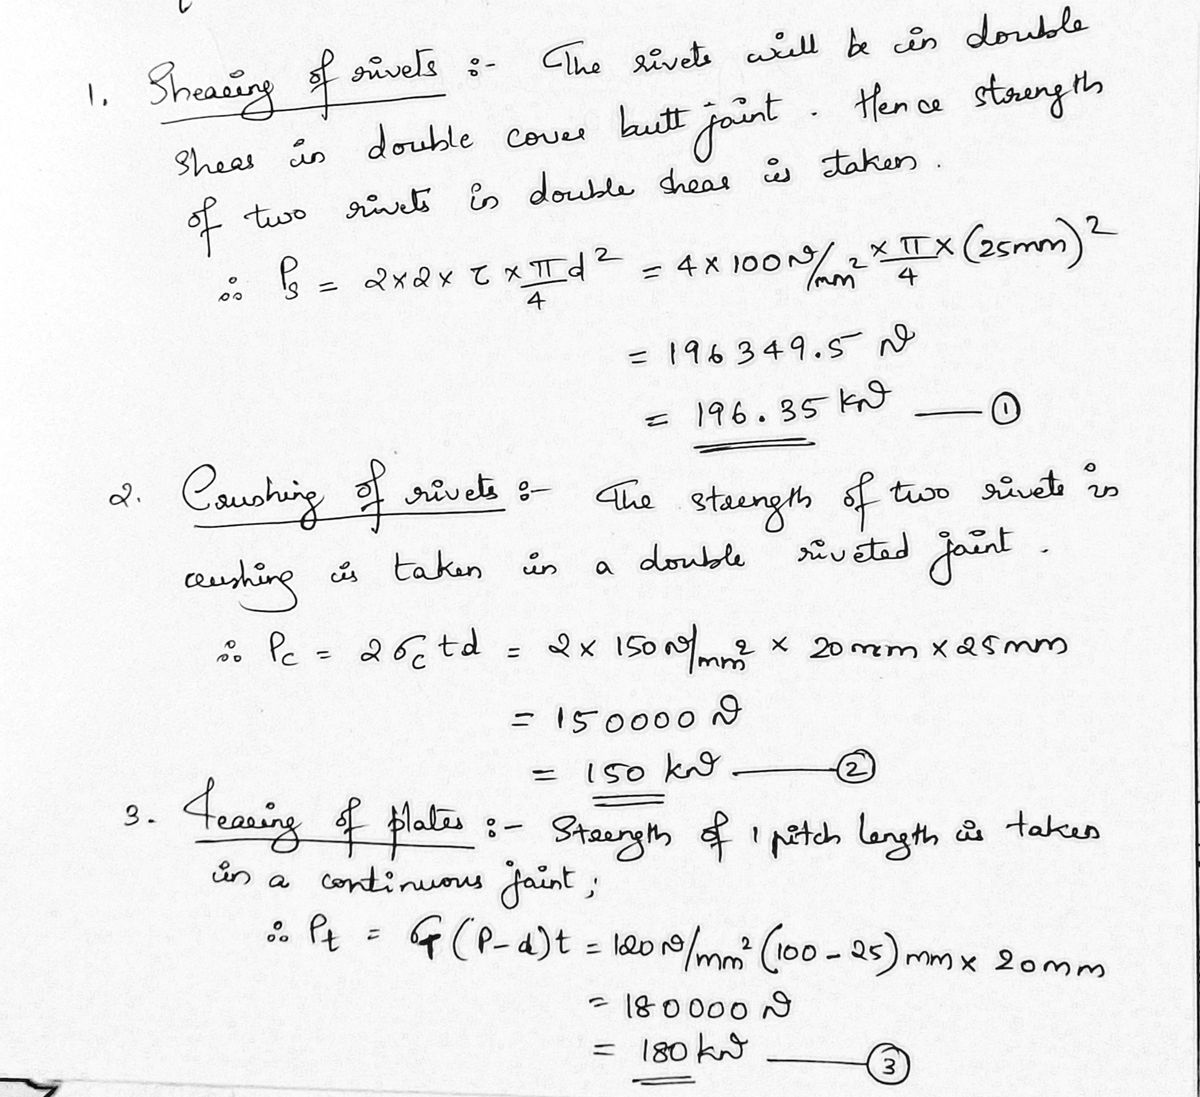 1. Shearing of rivets :- The rivets will be in double
shear in double cover butt joint. Hence strength
of two rivets in double shear is taken.
∴ Ps = 2×2× τ × π/4 d² = 4×100 N/mm² × π/4 × (25mm)²
= 196349.5 N
= 196.35 kN —— ①
2. Crushing of rivets :- The strength of two rivets in
crushing is taken in a double riveted joint.
∴ Pc = 2σc td = 2× 150 N/mm² × 20mm × 25mm
= 150000 N
= 150 kN —— ②
3. Tearing of plates :- Strength of 1 pitch length is taken
in a continuous joint;
∴ Pt = σT (P-d)t = 120 N/mm² (100-25) mm × 20mm
= 180000 N
= 180 kN —— ③